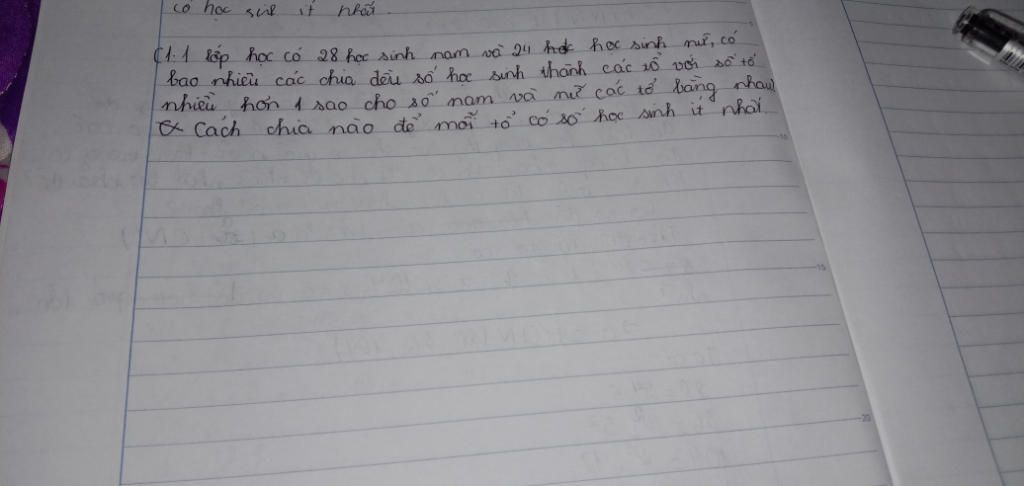 có học sinh ít nhất.
C1: 1 lớp học có 28 học sinh nam và 24 học sinh nữ, có
bao nhiêu các chia đều số học sinh thành các tổ với số tổ
nhiều hơn 1 sao cho số nam và nữ các tổ bằng nhau
Cách chia nào để mỗi tổ có số học sinh ít nhất